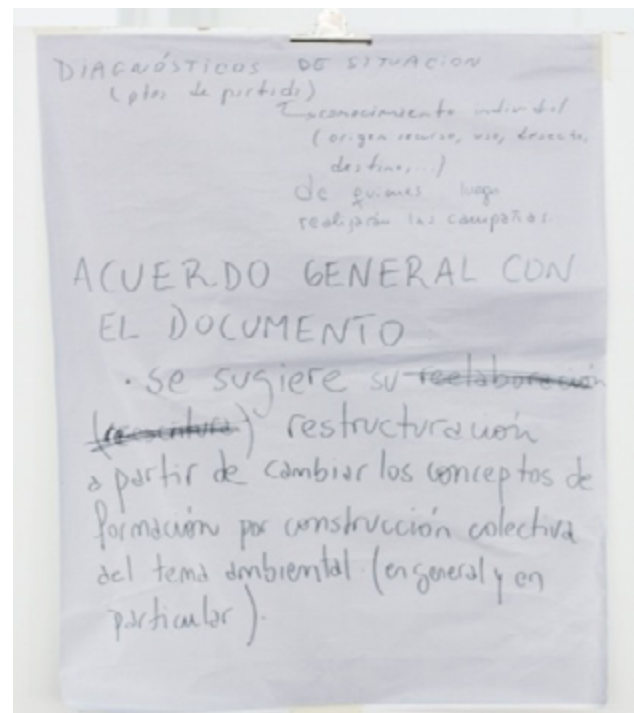 DIAGNÓSTICOS DE SITUACION
(ptos de partida)
reconocimiento individual
(origen recurso, uso, desecho,
destino, ...)
de quienes luego
realizarán las campañas.
ACUERDO GENERAL CON
EL DOCUMENTO
· se sugiere su reelaboración
(reescritura) restructuración
a partir de cambiar los conceptos de
formación por construcción colectiva
del tema ambiental (en general y en
particular).